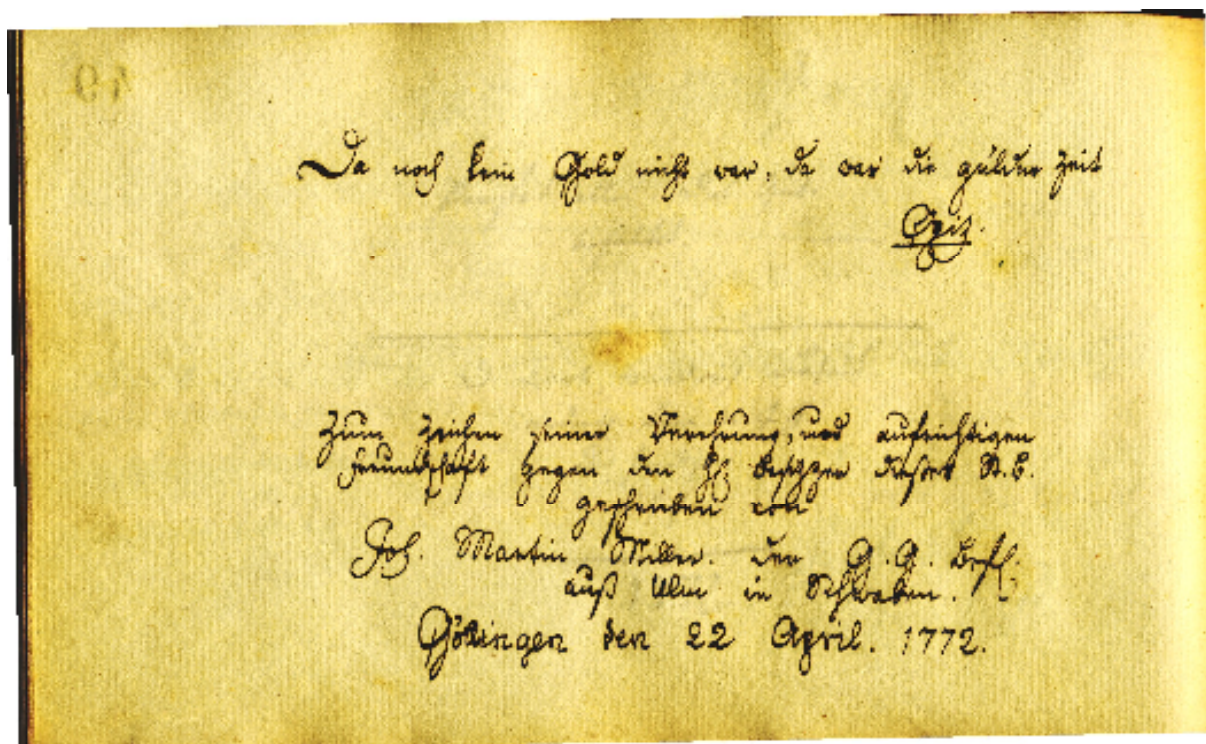 Da noch kein Gold nicht war, da war die gülden Zeit
Opitz.
Zum Zeichen seiner Verehrung, und aufrichtigen
Freundschafft gegen den HE. Besizzer dieses St. B.
geschrieben von
Joh. Martin Miller. der G. G. Befl.
auß Ulm in Schwaben.
Göttingen den 22 April. 1772.